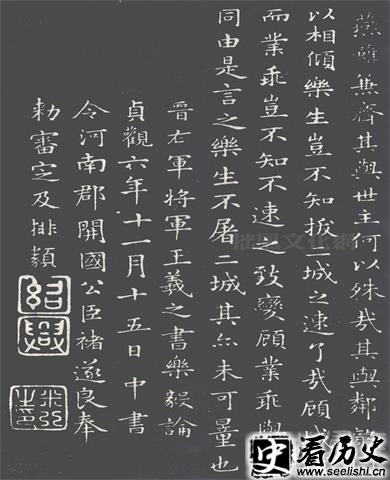 燕雖兼齊其與世主何以殊哉其與鄰
以相傾樂生豈不知拔城之速了哉顧城
而業乖豈不知不速之致變顧業乖與
同由是言之樂生不屠二城其亦未可量也
晉右軍將軍王羲之書樂毅論
貞觀六年十一月十五日中書
令河南郡開國公臣褚遂良奉
勅審定及排類
紹興
拙風文化網
史看历史
www.seelishi.cn